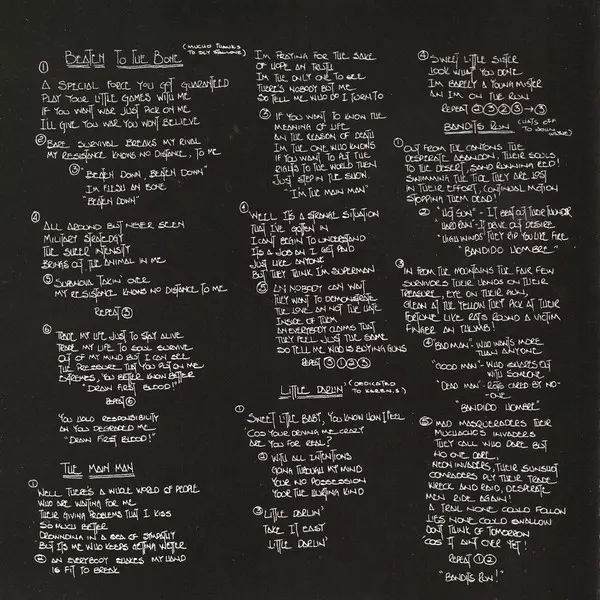 BEATEN TO THE BONE
(MUCHO THANKS
TO SLY STALLONE)
①
A SPECIAL FORCE YOU GOT GUARANTEED
PLAY YOUR LITTLE GAMES WITH ME
IF YOU WANT WAR JUST PICK ON ME
I'LL GIVE YOU WAR YOU WON'T BELIEVE
② BARE SURVIVAL BREAKS MY RIVAL
MY RESISTANCE KNOWS NO DISTANCE, TO ME
③ "BEATEN DOWN, BEATEN DOWN"
I'M FLESH AN BONE
"BEATEN DOWN"
④
ALL AROUND BUT NEVER SEEN
MILITARY STRATEDGY
THE SHEER INTENSITY
BRINGS OUT THE ANIMAL IN ME
⑤ PARANOIA TAKIN' OVER
MY RESISTANCE KNOWS NO DISTANCE TO ME
REPEAT ③
⑥
TRADE MY LIFE JUST TO STAY ALIVE
TRADE MY LIFE TO SOUL SURVIVE
OUT OF MY MIND BUT I CAN SEE
THE PRESSURE THAT YOU PUT ON ME
EXTREMES, YOU BETTER KNOW BETTER
"DRAWN FIRST BLOOD!"
REPEAT ⑥
YOU HOLD RESPONSIBILITY
AN YOU DEGRADED ME
"DRAWN FIRST BLOOD!"
THE MAIN MAN
①
WELL THERE'S A WHOLE WORLD OF PEOPLE
WHO ARE WAITING FOR ME
THEIR GIVING PROBLEMS THAT I KISS
SO MUCH BETTER
DROWNDING IN A SEA OF SYMPATHY
BUT ITS ME WHO KEEPS GETTING WETTER
② AN EVERYBODY SHAKES MY HAND
IS FIT TO BREAK
I'M PRAYING FOR THE SAKE
OF HOPE AN TRUTH
I'M THE ONLY ONE TO SEE
THERE'S NOBODY BUT ME
SO TELL ME WHO DO I TURN TO
③
IF YOU WANT TO KNOW THE
MEANING OF LIFE
AN THE REASON OF DEATH
I'M THE ONE WHO KNOWS
IF YOU WANT TO PUT THE
RIGHTS TO THE WORLD THEN
JUST STEP IN THE SHOW.
"I'M THE MAIN MAN"
④
WELL ITS A STRANGE SITUATION
THAT I'VE GOTTEN IN
I CAN'T BEGIN TO UNDERSTAND
ITS A JOB AN I GET PAID
JUST LIKE ANYONE
BUT THEY THINK I'M SUPERMAN
⑤ AN NOBODY CAN WAIT
THEY WANT TO DEMONSTRATE
THE LOVE AN NOT THE HATE
INSIDE OF THEM
AN EVERYBODY CLAIMS THAT
THEY FEEL JUST THE SAME
SO TELL ME WHO IS BUYING GUNS
REPEAT ③ ① ② ③
LITTLE DARLIN'
(DEDICATED
TO KAREN.S)
①
SWEET LITTLE BABY, YOU KNOW HOW I FEEL
'COS YOUR DRIVING ME CRAZY
ARE YOU FOR REAL?
② WITH ALL INTENTIONS
GOING THROUGH MY MIND
YOUR NO POSSESSION
YOUR THE HURTING KIND
③ LITTLE DARLIN'
TAKE IT EASY
LITTLE DARLIN'
④ SWEET LITTLE SISTER
LOOK WHAT YOU DONE
I'M BARELY A YOUNG MISTER
AN I'M ON THE RUN
REPEAT ② ③ ② ③ → ③
BANDITS RUN
(HATS OFF
TO JOHN
WAYNE)
① OUT FROM THE CANYONS THE
DESPERATE ABANDON, THEIR SOULS,
TO THE DESERT, SAND RUNNING RED!
SWIMMING THE TIDE THEY ARE LOST
IN THEIR EFFORT, CONTINUAL MOTION
STOPPING THEM DEAD!
② "HOT SUN" - IT BEAT OUT THEIR THUNDER
HARD RAIN - IT DROVE OUT DESIRE
"HIGH WINDS" THEY RIP YOU LIKE FIRE
"BANDIDO HOMBRE"
③ IN FROM THE MOUNTAINS THE FAIR FEW
SURVIVORS THEIR HANDS ON THEIR
TREASURE, EYE ON THEIR RUN,
GLEAN AT THE YELLOW THEY PICK AT THEIR
FORTUNE LIKE RATS ROUND A VICTIM
FINGER AN THUMB!
④ "BAD MAN" - WHO WANTS MORE
THAN ANYONE
"GOOD MAN" - WHO SHARES OUT
WITH SOMEONE
"DEAD MAN" - ROTS CARED BY NO-
-ONE
"BANDIDO HOMBRE"
⑤ MAD MASQUERADERS THEIR
MUCHACHOS INVADERS
THEY CALL WHO DARE BUT
NO ONE CARE,
NEON INVADERS, THEIR SUNSHOT
COMRADERS PLY THEIR TRADE
WRECK AND RAID, DESPERATE
MEN RIDE AGAIN!
A TRAIL NONE COULD FOLLOW
LIES NONE COULD SWALLOW
DON'T THINK OF TOMORROW
'COS IT AIN'T OVER YET!
REPEAT ① ②
"BANDITS RUN!"